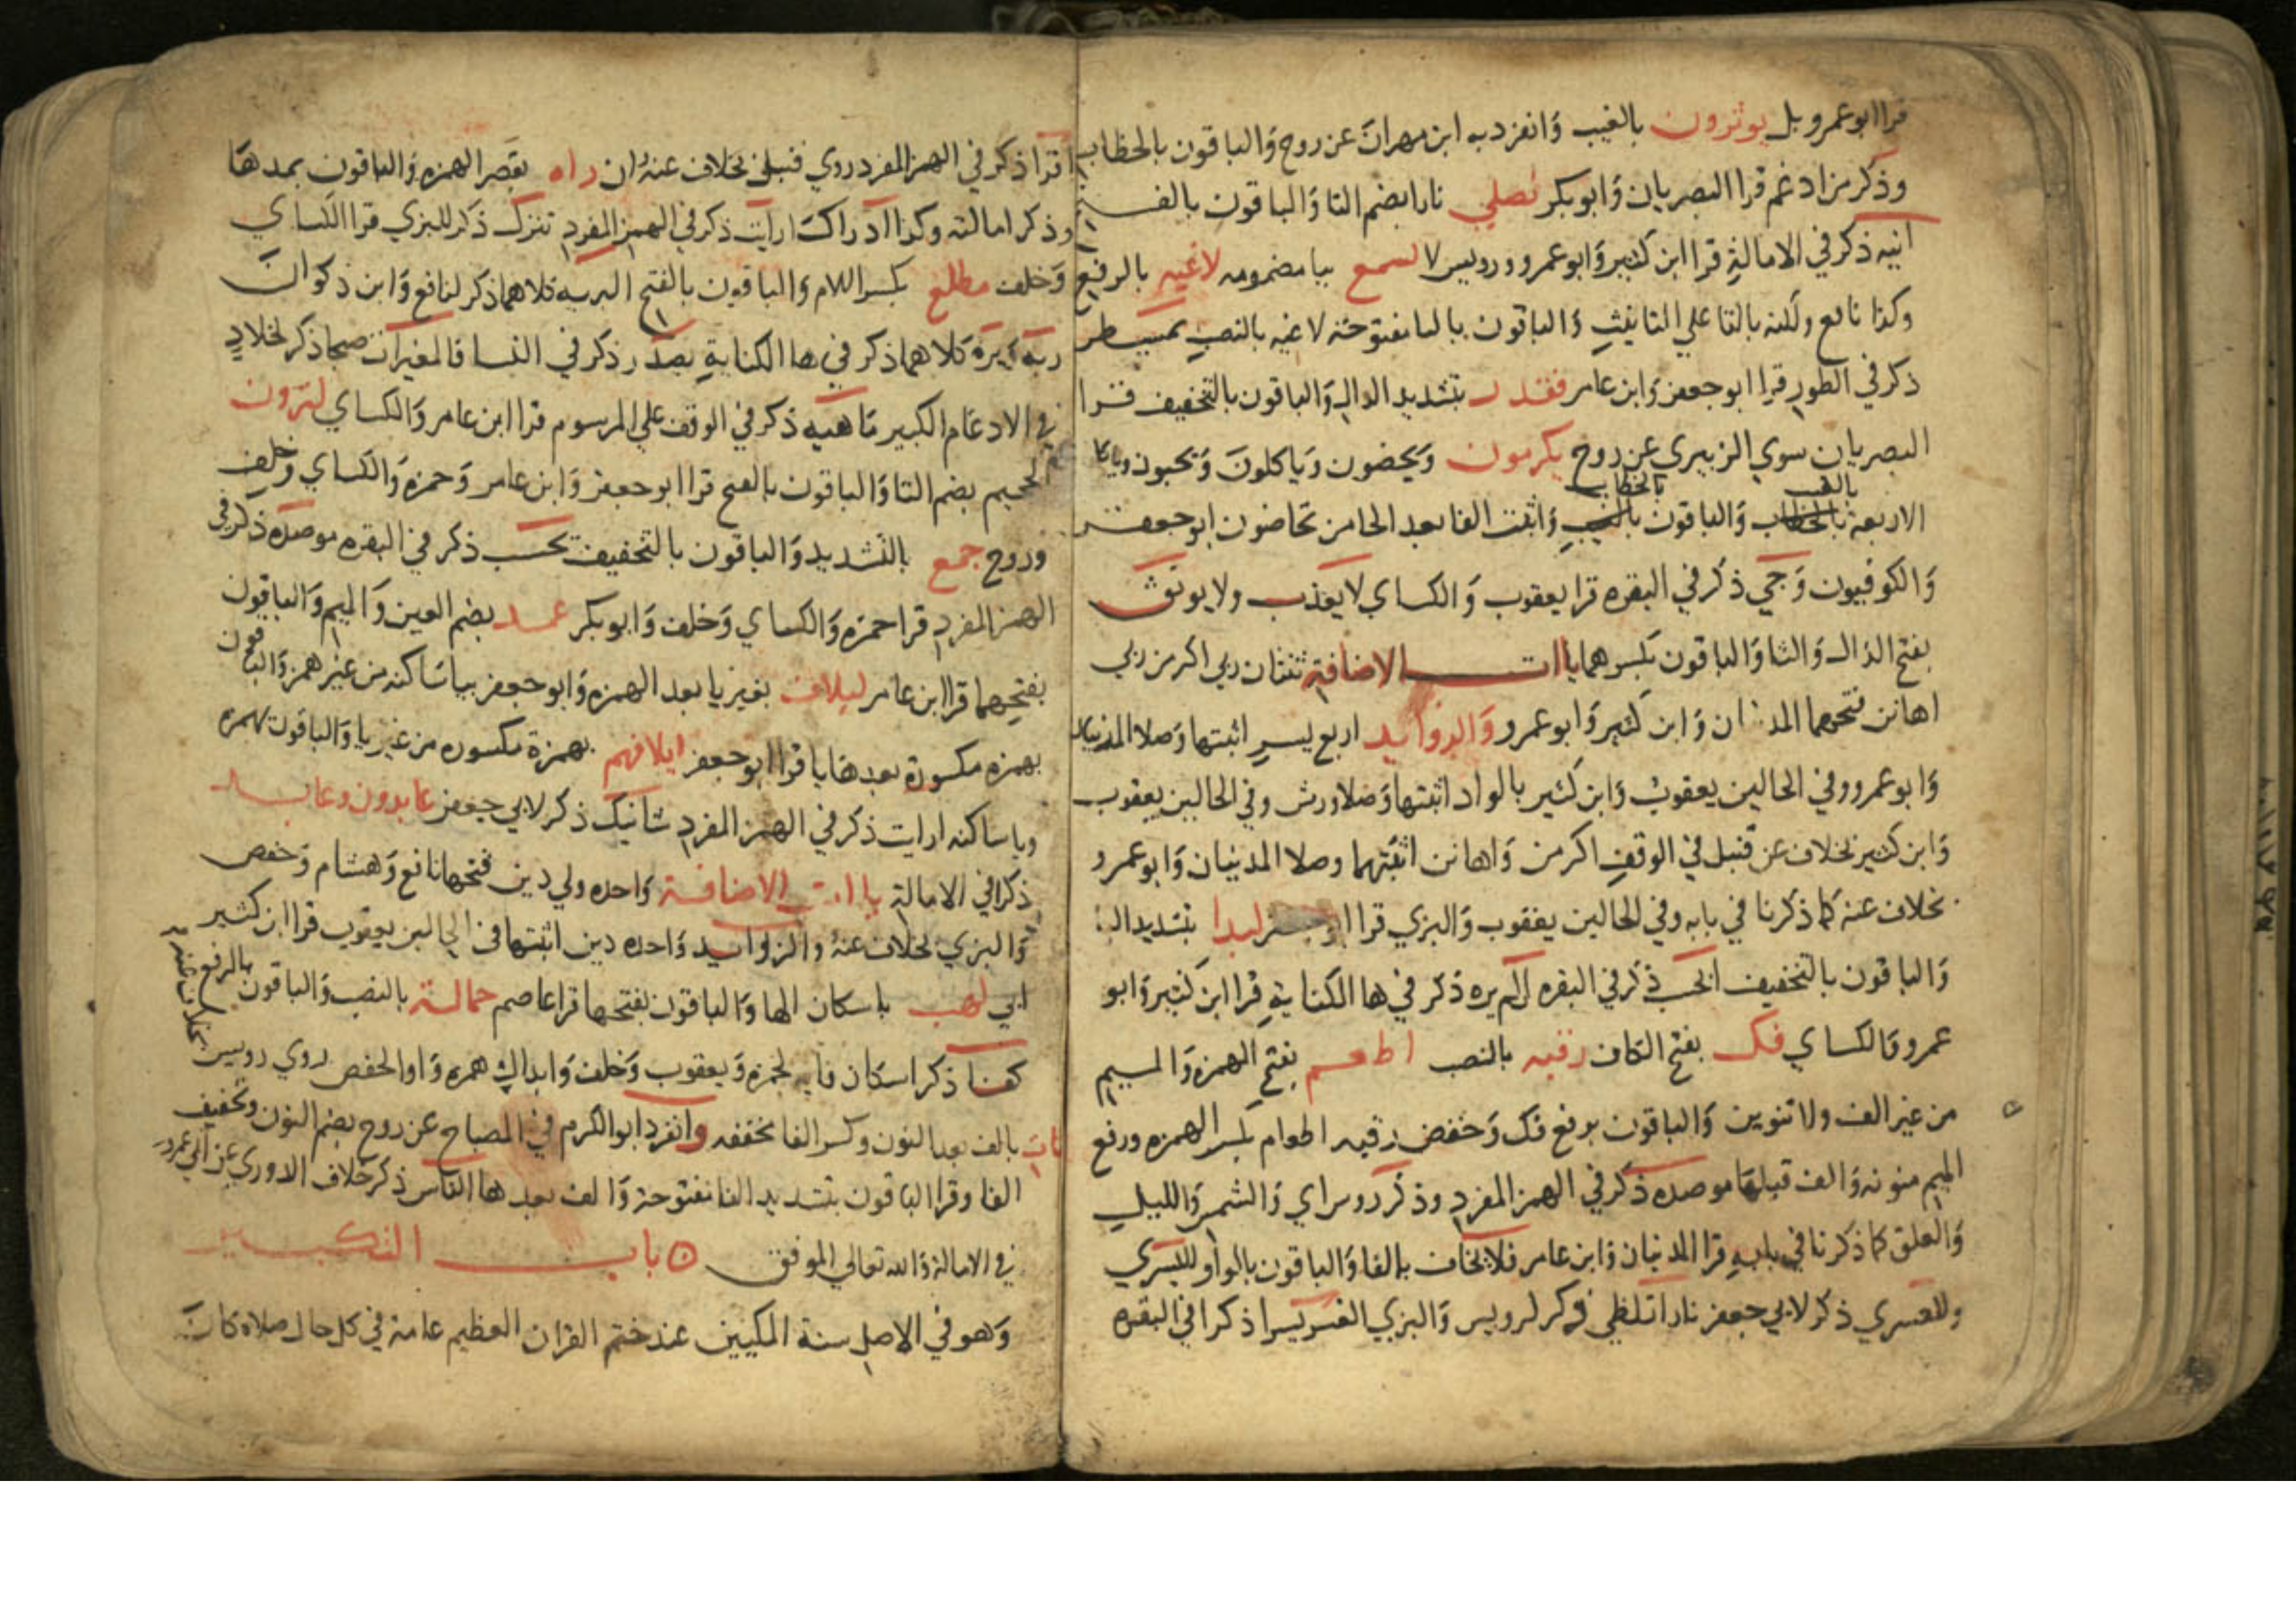 قرا ابو عمرو بل يوثرون بالغيب وانفرد به ابن مهران عن روح والباقون بالخطاب
وذكر من ادغم قرا البصريان وابو بكر تصلي نارا بضم التا والباقون بالفتح
انيه ذكر في الامالة قرا ابن كثير وابو عمرو ورويس لا يسمع بيا مضمومه لاغيه بالرفع
وكذا نافع ولكنه بالتا علي التانيث والباقون بالتا مفتوحة لاغيه بالنصب بمسيطر
ذكر في الطور قرا ابو جعفر وابن عامر فقدر بتشديد الدال والباقون بالتخفيف قرا
البصريان سوي الزبيري عن روح يكرمون ويحضون وياكلون ويحبون
بالغيب بالخطاب
الاربعة بالخطاب والباقون بالغيب واثبت الفا بعد الحا من تحاضون ابو جعفر
والكوفيون وجي ذكر في البقره قرا يعقوب والكساي لا يعذب ولا يوثق
بفتح الذال والثا والباقون بكسرهما ياات الاضافة ثنتان ربي اكرمن ربي
اهانن فتحهما المدنيان وابن كثير وابو عمرو والزوايد اربع يسر اثبتها وصلا المدنيان
وابو عمرو وفي الحالين يعقوب وابن كثير بالواد اثبتها وصلا ورش وفي الحالين يعقوب
وابن كثير بخلاف عن قنبل في الوقف اكرمن واهانن اثبتهما وصلا المدنيان وابو عمرو
بخلاف عنه كما ذكرنا في بابه وفي الحالين يعقوب والبزي قرا ابو جعفر لبدا بتشديد البا
والباقون بالتخفيف ايحسب ذكر في البقره ان لم يره ذكر في ها الكناية قرا ابن كثير وابو
عمرو والكساي فك بفتح الكاف رقبه بالنصب اطعم بفتح الهمزه والميم
من غير الف ولا تنوين والباقون برفع فك وخفض رقبه اطعام بكسر الهمزه ورفع
الميم منونه والف قبلها موصده ذكر في الهمز المفرد وذكر روس اي والشمس والليل
والعلق كما ذكرنا في بابه قرا المدنيان وابن عامر فلا يخاف بالفا والباقون بالواو لليسري
وللعسري ذكر لابي جعفر نارا تلظي ذكر لرويس والبزي العسر يسرا ذكر افي البقره
اقرا ذكر في الهمز المفرد روي قنبل بخلاف عنه ان راه بقصر الهمزه والباقون بمدها
وذكر امالته وكذا ادراك ارايت ذكر في الهمز المفرد تنزل ذكر للبزي قرا الكساي
وخلف مطلع بكسر اللام والباقون بالفتح البريه كلاهما ذكر لنافع وابن ذكوان
ربه يره كلاهما ذكر في ها الكناية يصدر ذكر في النسا فالمغيرات صبحا ذكر لخلاد
في الادغام الكبير ماهيه ذكر في الوقف علي المرسوم قرا ابن عامر والكساي لترون
الجحيم بضم التا والباقون بالفتح قرا ابو جعفر وابن عامر وحمزه والكساي وخلف
وروح جمع بالتشديد والباقون بالتخفيف يحسب ذكر في البقره موصده ذكر في
الهمز المفرد قرا حمزه والكساي وخلف وابو بكر عمد بضم العين والميم والباقون
بفتحهما قرا ابن عامر ليلاف بغير يا بعد الهمزه وابو جعفر بيا ساكنه من غير همز والباقون
بهمزه مكسورة بعدها يا قرا ابو جعفر ايلافهم بهمزة مكسوره من غير يا والباقون بهمزه
ويا ساكنه ارايت ذكر في الهمز المفرد شانيك ذكر لابي جعفر عابدون وعابد
ذكرا في الامالة ياات الاضافة واحده ولي دين فتحها نافع وهشام وحفص
والبزي بخلاف عنه والزوايد واحده دين اثبتها في الحالين يعقوب قرا ابن كثير
ابي لهب باسكان الها والباقون بفتحها قرا عاصم حمالة بالنصب والباقون بالرفع
كفوا ذكر اسكان فايه لحمزه ويعقوب وخلف وابدال همزه واوا لحفص روي رويس
بخلاف عنه
النفاثات بالف بعد النون وكسر الفا مخففه وانفرد ابو الكرم في المصباح عن روح بضم النون وتخفيف
الفا وقرا الباقون بتشديد الفا مفتوحة والف بعدها الناس ذكر خلاف الدوري عن ابي عمرو
في الامالة والله تعالي الموفق باب التكبير
وهو في الاصل سنة المكيين عند ختم القران العظيم عامة في كل حال صلاة كان